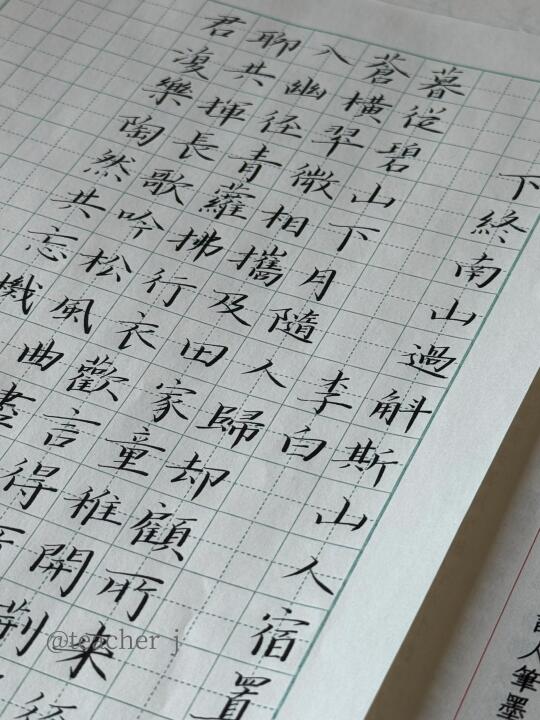 下終南山過斛斯山人宿置
李白
暮從碧山下月隨人歸却顧所來径
蒼橫翠微相攜及田家童稚開荊
入幽径青蘿拂行衣歡言得所
聊共揮長歌吟松風曲盡
君復樂陶然共忘機
人筆墨
@teacher j